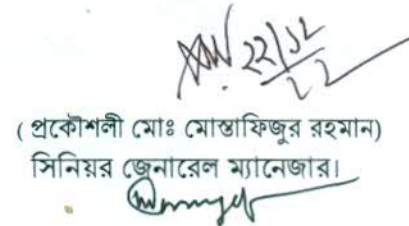 ২২/১২
২২
( প্রকৌশলী মোঃ মোস্তাফিজুর রহমান)
সিনিয়র জেনারেল ম্যানেজার।